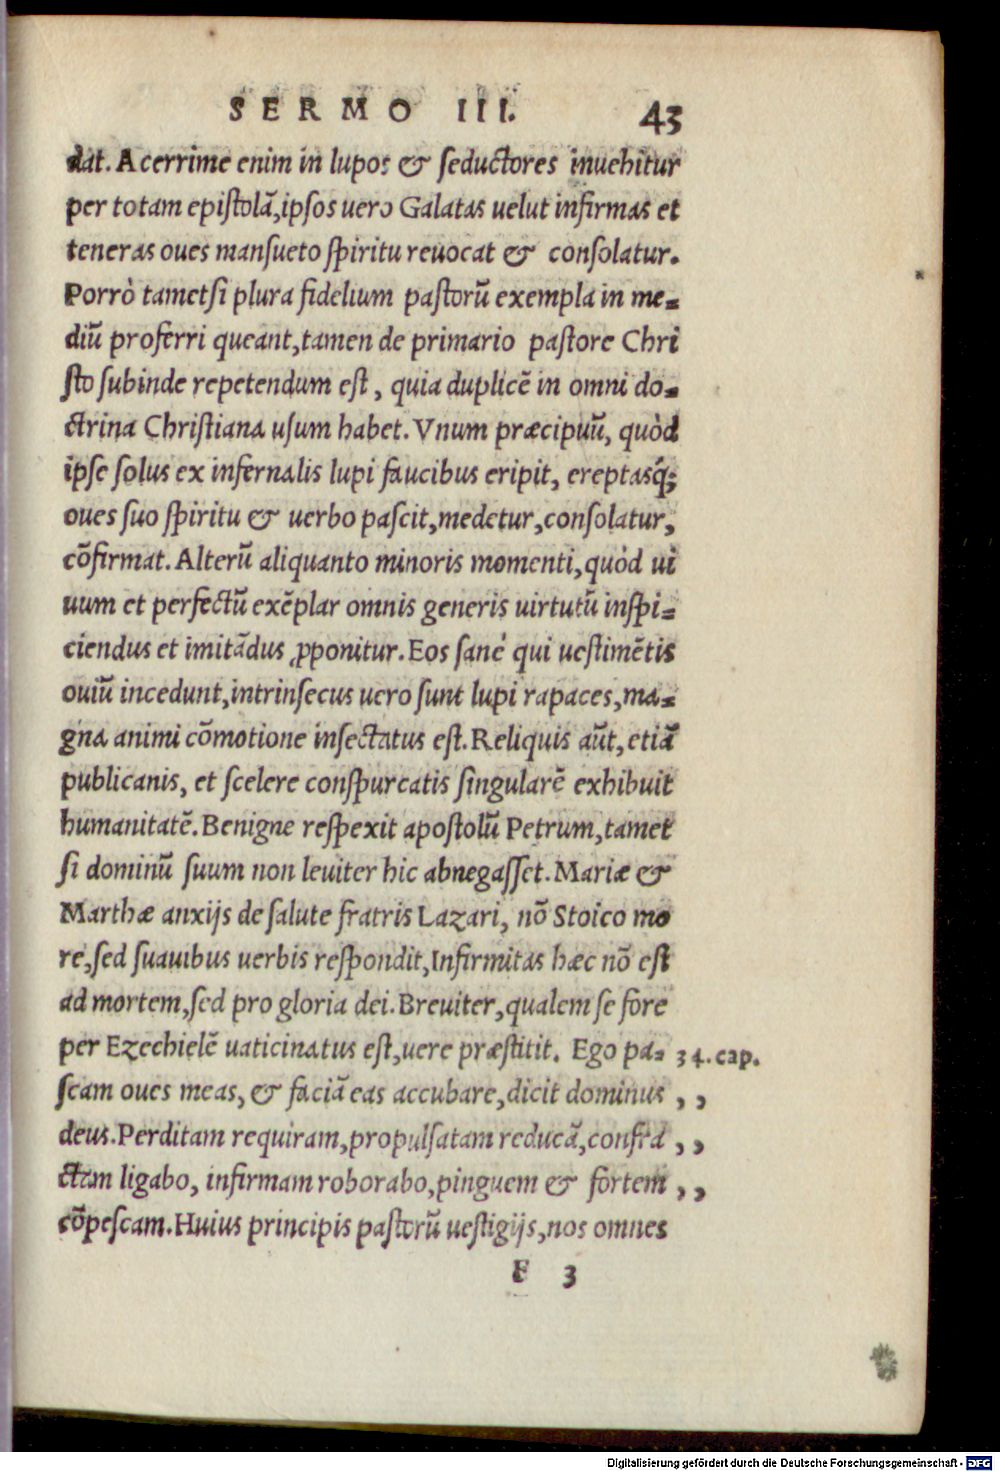 SERMO III. 43
dat. Acerrime enim in lupos & ſeductores inuehitur
per totam epiſtolā, ipſos uero Galatas uelut infirmas et
teneras oues manſueto ſpiritu reuocat & conſolatur.
Porrò tametſi plura fidelium paſtorū exempla in me-
diū proferri queant, tamen de primario paſtore Chri
ſto ſubinde repetendum eſt, quia duplicē in omni do-
ctrina Chriſtiana uſum habet. Vnum præcipuū, quòd
ipſe ſolus ex infernalis lupi faucibus eripit, ereptasq́;
oues ſuo ſpiritu & uerbo paſcit, medetur, conſolatur,
cōfirmat. Alterū aliquanto minoris momenti, quòd ui
uum et perfectū exēplar omnis generis uirtutū inſpi-
ciendus et imitādus ꝓponitur. Eos ſanè qui ueſtimētis
ouiū incedunt, intrinſecus uero ſunt lupi rapaces, ma-
gna animi cōmotione inſectatus eſt. Reliquis aūt, etiā
publicanis, et ſcelere conſpurcatis ſingularē exhibuit
humanitatē. Benigne reſpexit apoſtolū Petrum, tamet
ſi dominū ſuum non leuiter hic abnegaſſet. Mariæ &
Marthæ anxijs de ſalute fratris Lazari, nō Stoico mo
re, ſed ſuauibus uerbis reſpondit, Infirmitas hæc nō eſt
ad mortem, ſed pro gloria dei. Breuiter, qualem ſe fore
per Ezechielē uaticinatus eſt, uere præſtitit. Ego pa- 34. cap.
ſcam oues meas, & faciā eas accubare, dicit dominus ,,
deus. Perditam requiram, propulſatam reducā, confra ,,
ctam ligabo, infirmam roborabo, pinguem & fortem ,,
cōpeſcam. Huius principis paſtorū ueſtigijs, nos omnes
F 3
Digitalisierung gefördert durch die Deutsche Forschungsgemeinschaft - DFG